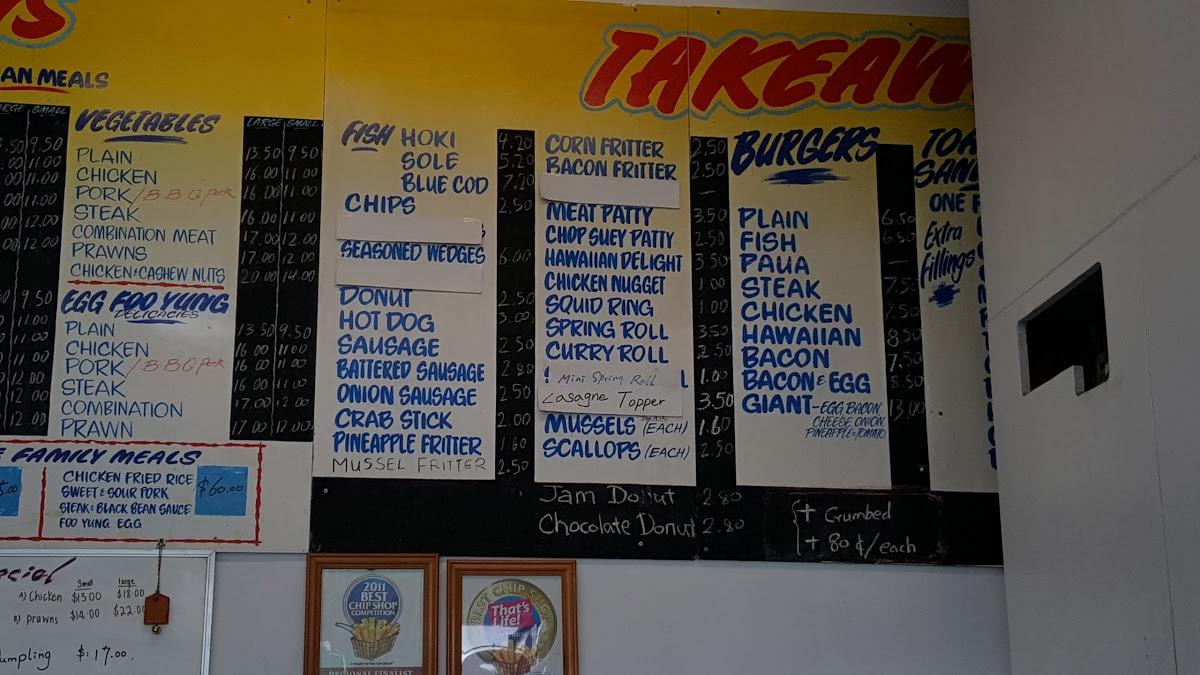 TAKEAW
AN MEALS
LARGE SMALL
VEGETABLES
PLAIN 13.50 9.50
CHICKEN 16.00 11.00
PORK / B.B.Q Pork 16.00 11.00
STEAK 16.00 11.00
COMBINATION MEAT 17.00 12.00
PRAWNS 17.00 12.00
CHICKEN & CASHEW NUTS 20.00 14.00
EGG FOO YUNG
DELICACIES
PLAIN 13.50 9.50
CHICKEN 16.00 11.00
PORK / B.B.Q Pork 16.00 11.00
STEAK 16.00 11.00
COMBINATION 17.00 12.00
PRAWN 17.00 12.00
FAMILY MEALS
CHICKEN FRIED RICE
SWEET & SOUR PORK
STEAK & BLACK BEAN SAUCE
FOO YUNG EGG
$60.00
Small large
A) Chicken $13.00 $18.00
B) Prawns $14.00 $22.00
umpling $:17.00.
FISH HOKI 4.20
SOLE 5.20
BLUE COD 7.20
CHIPS 2.50
SEASONED WEDGES 6.00
DONUT 2.50
HOT DOG 3.00
SAUSAGE
BATTERED SAUSAGE 2.80
ONION SAUSAGE 2.50
CRAB STICK 2.00
PINEAPPLE FRITTER 1.60
MUSSEL FRITTER 2.50
CORN FRITTER 2.50
BACON FRITTER 2.50
MEAT PATTY 3.50
CHOP SUEY PATTY 2.50
HAWAIIAN DELIGHT 3.50
CHICKEN NUGGET 1.00
SQUID RING 1.00
SPRING ROLL 3.50
CURRY ROLL 2.50
Mini Spring Roll 1.00
Lasagne Topper 3.50
MUSSELS (EACH) 1.60
SCALLOPS (EACH) 2.50
Jam Donut 2.80
Chocolate Donut 2.80
BURGERS
PLAIN 6.50
FISH 6.50
PAUA —
STEAK 7.50
CHICKEN 7.50
HAWAIIAN 8.50
BACON 7.50
BACON & EGG 8.50
GIANT - EGG BACON 13.00
CHEESE ONION
PINEAPPLE & TOMATO
+ Crumbed
+ 80¢/each
TOA
SAN
ONE F
Extra
fillings
2011
BEST
CHIP SHOP
COMPETITION
REGIONAL FINALIST
BEST CHIP SHOP
That's
Life!